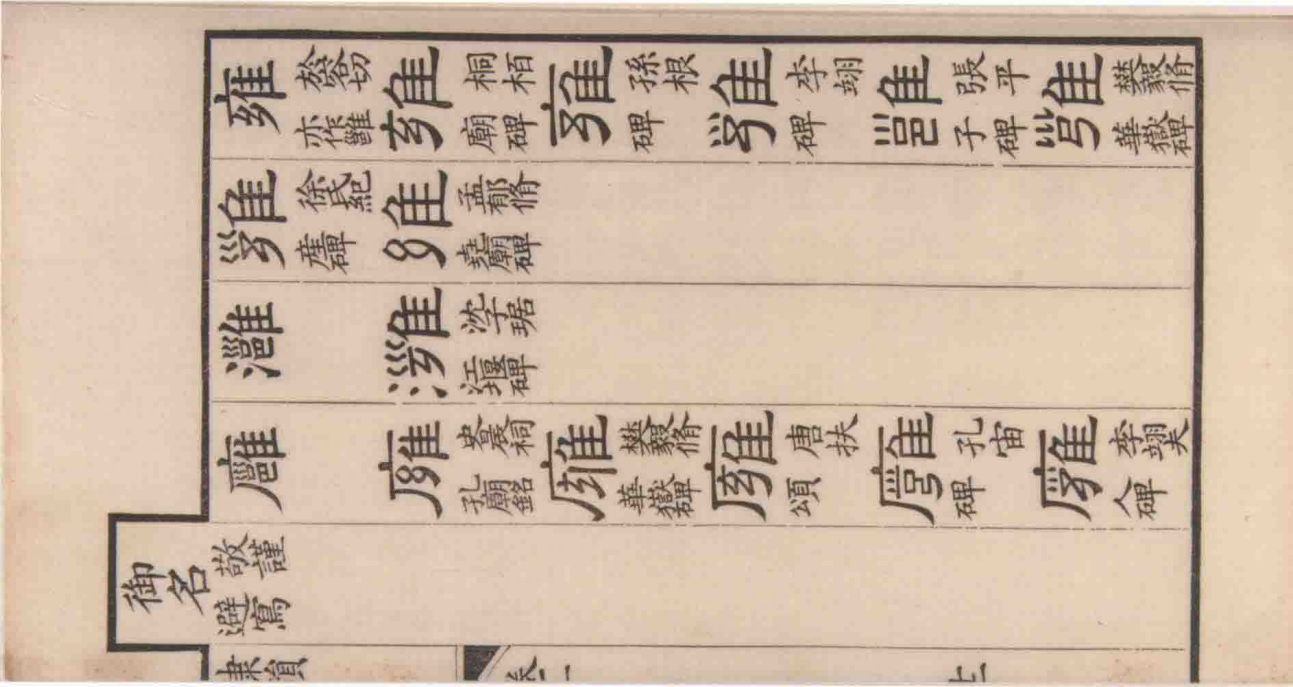 雍於容切亦作雝雍桐栢廟碑雍孫根碑雍李翊碑雝張平子碑雍樊毅脩華嶽碑
雍徐氏紀産碑雍孟郁脩堯廟碑
灉灉沈子琚江堰碑
廱廱史晨祠孔廟銘廱樊毅脩華嶽碑廱唐扶頌廱孔宙碑廱李翊夫人碑
御名敬謹避寫